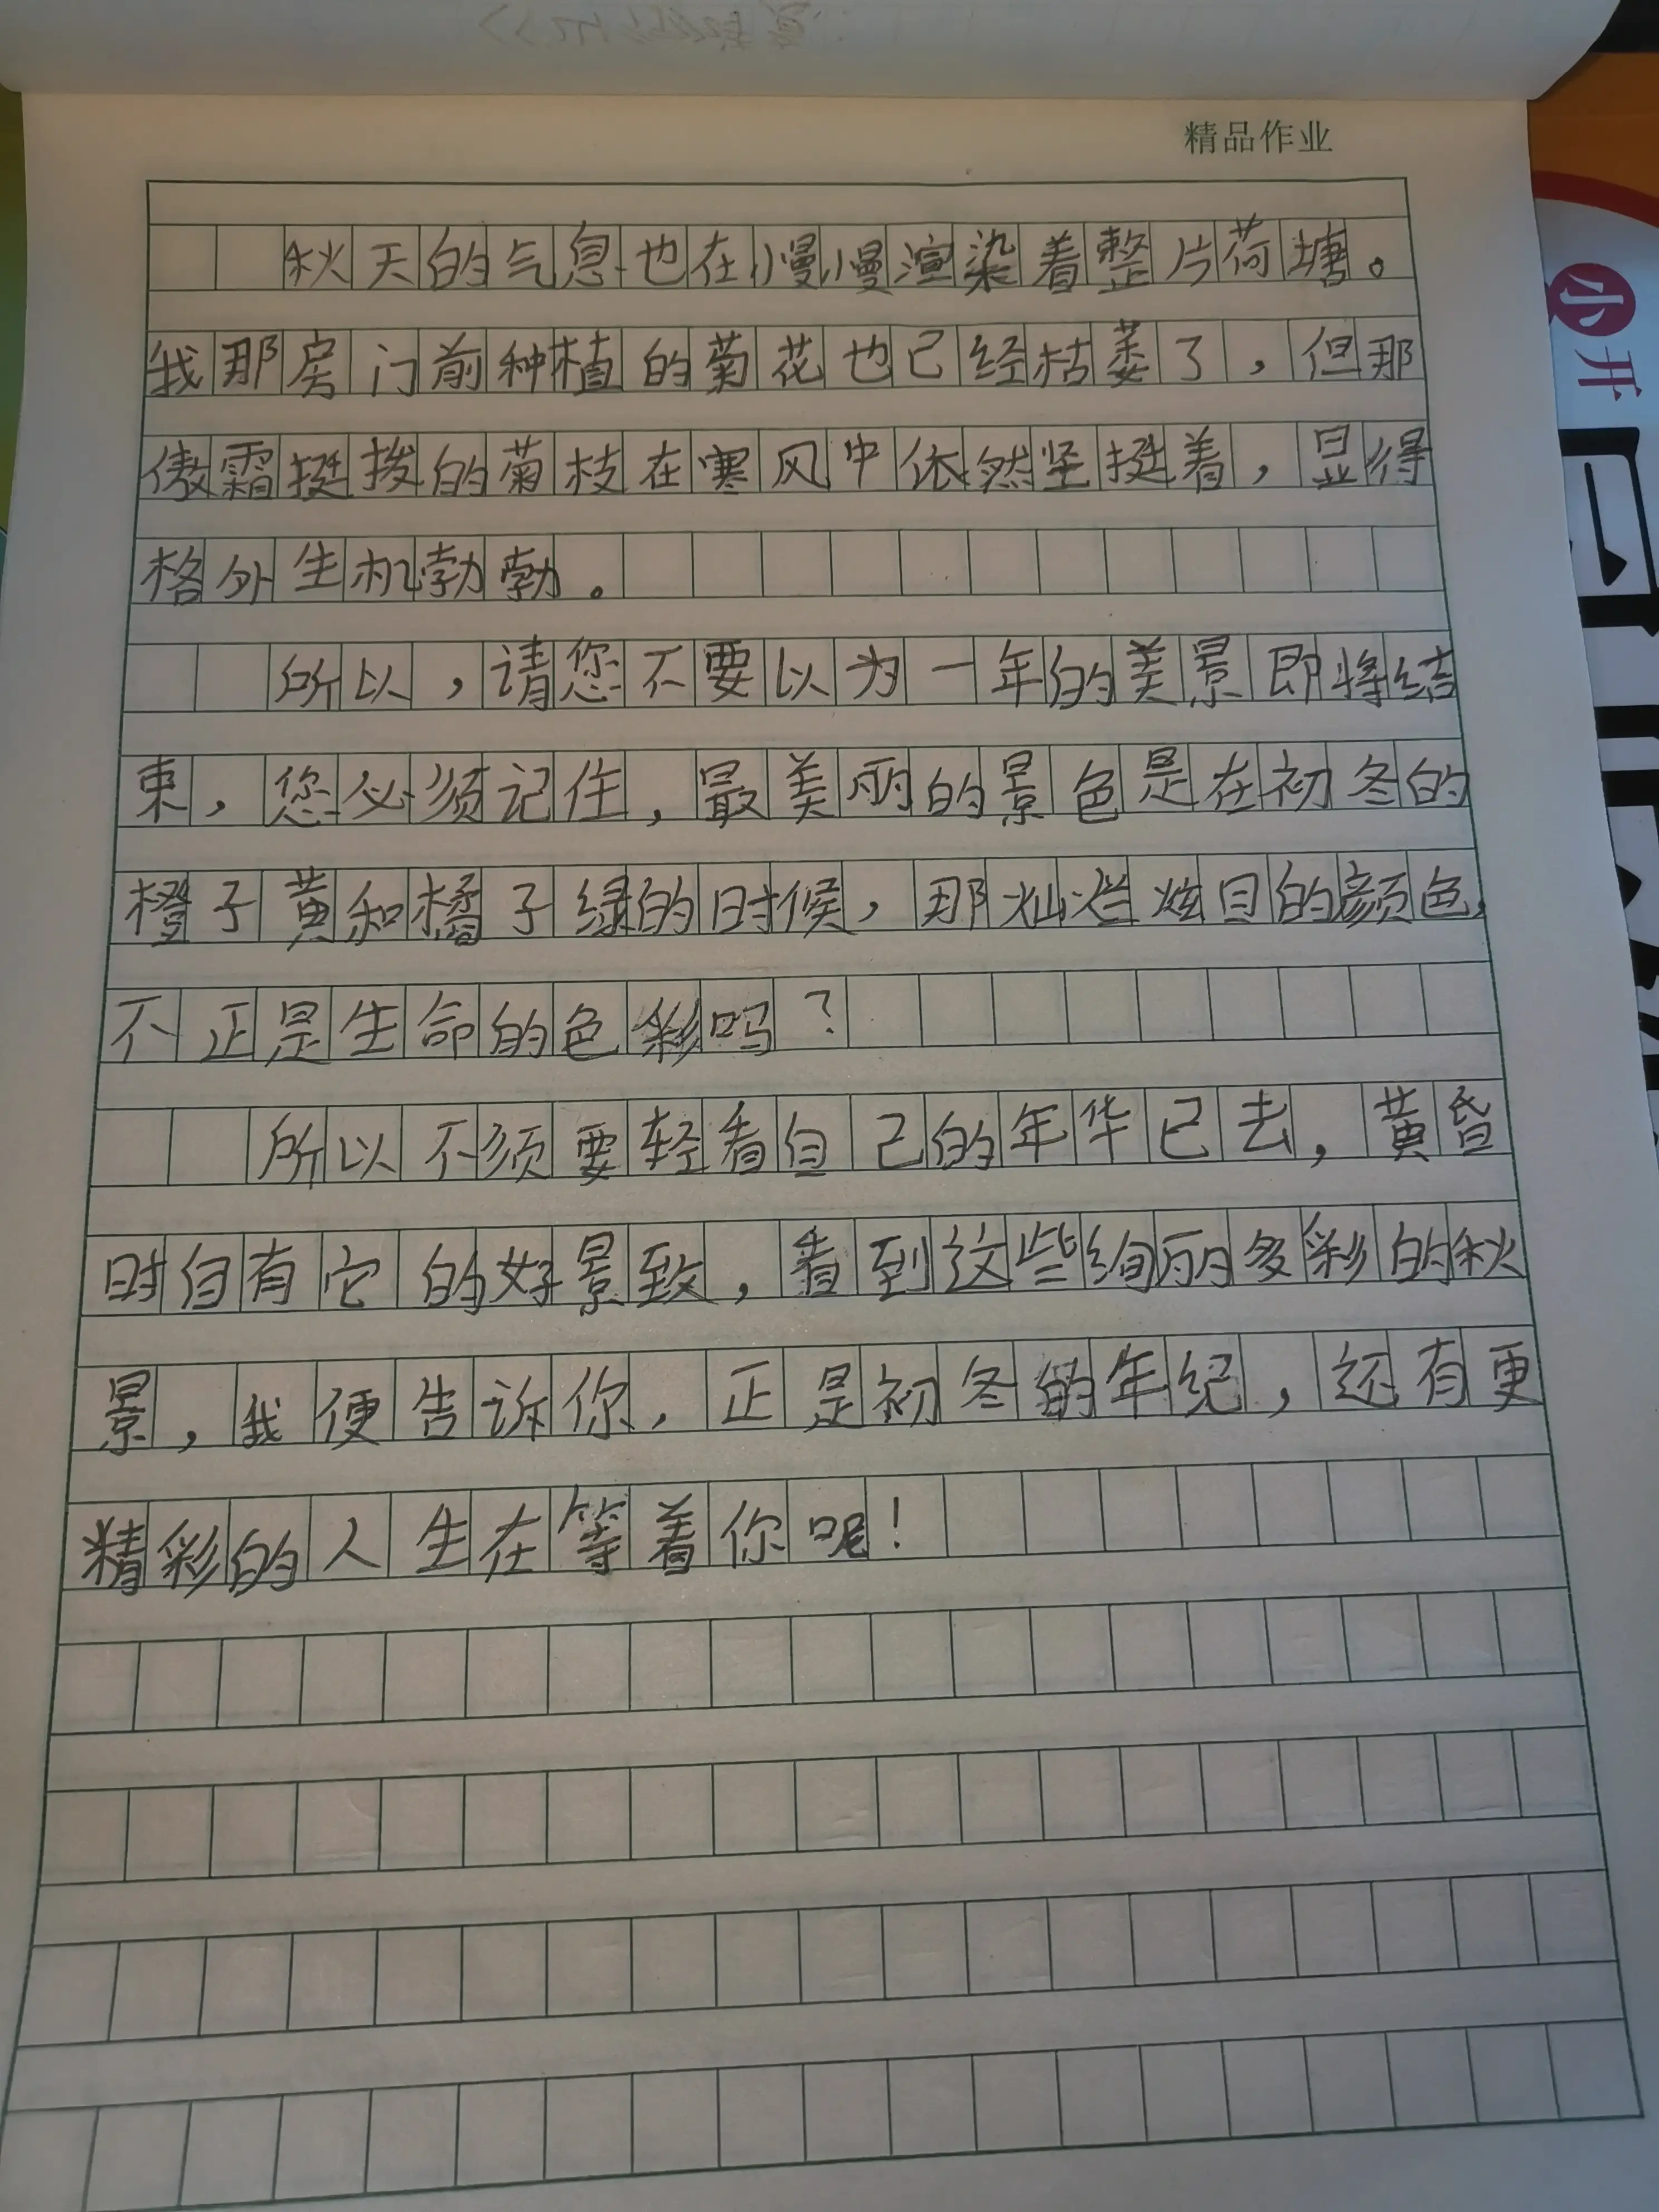 精品作业
秋天的气息也在慢慢渲染着整片荷塘。
我那房门前种植的菊花也已经枯萎了，但那
傲霜挺拨的菊枝在寒风中依然坚挺着，显得
格外生机勃勃。
所以，请您不要以为一年的美景即将结
束，您必须记住，最美丽的景色是在初冬的
橙子黄和橘子绿的时候，那灿烂炫目的颜色，
不正是生命的色彩吗？
所以不须要轻看自己的年华已去，黄昏
时自有它的好景致，看到这些绚丽多彩的秋
景，我便告诉你，正是初冬的年纪，还有更
精彩的人生在等着你呢！
小
开